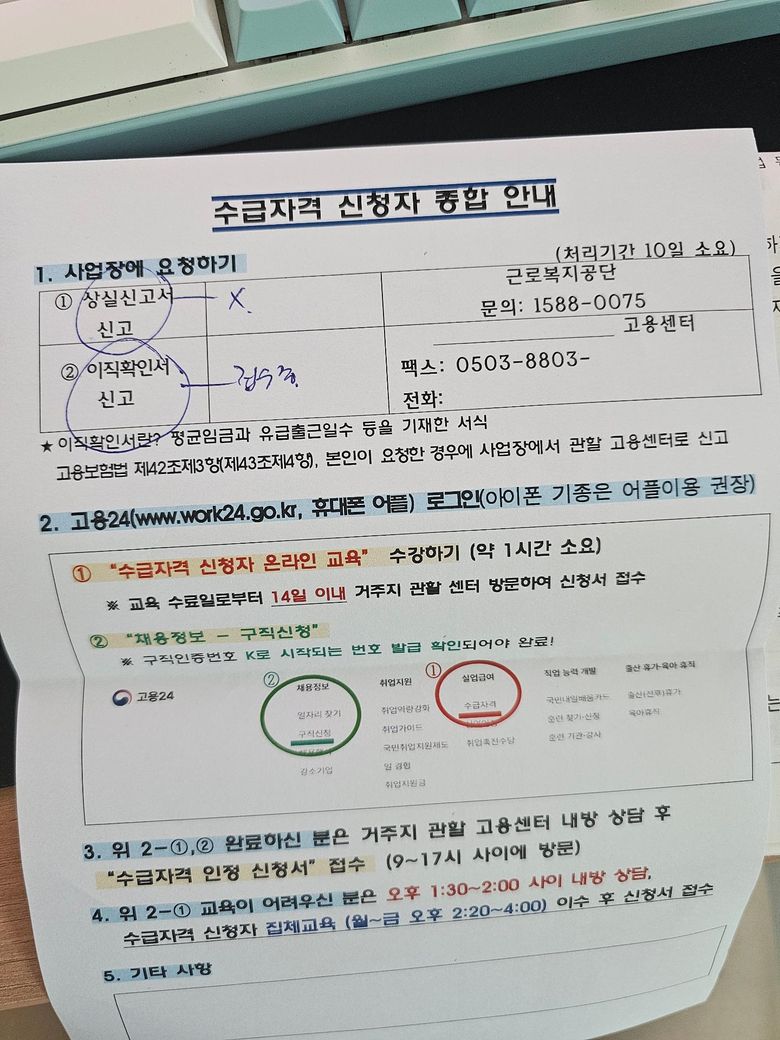 수급자격 신청자 종합 안내
1. 사업장에 요청하기
(처리기간 10일 소요)
① 상실신고서 신고
X.
근로복지공단
문의: 1588-0075
② 이직확인서 신고
접수중.
고용센터
팩스: 0503-8803-
전화:
★ 이직확인서란? 평균임금과 유급출근일수 등을 기재한 서식
고용보험법 제42조제3항(제43조제4항), 본인이 요청한 경우에 사업장에서 관할 고용센터로 신고
2. 고용24(www.work24.go.kr, 휴대폰 어플) 로그인(아이폰 기종은 어플이용 권장)
① "수급자격 신청자 온라인 교육" 수강하기 (약 1시간 소요)
※ 교육 수료일로부터 14일 이내 거주지 관할 센터 방문하여 신청서 접수
② "채용정보 - 구직신청"
※ 구직인증번호 K로 시작되는 번호 발급 확인되어야 완료!
고용24
② 채용정보
일자리 찾기
구직신청
강소기업
취업지원
취업역량강화
취업가이드
국민취업지원제도
일 경험
취업지원금
① 실업급여
수급자격
취업촉진수당
직업 능력 개발
국민내일배움카드
훈련 찾기·신청
훈련 기관·강사
출산 휴가·육아 휴직
출산(전후)휴가
육아휴직
3. 위 2-①,② 완료하신 분은 거주지 관할 고용센터 내방 상담 후
"수급자격 인정 신청서" 접수 (9~17시 사이에 방문)
4. 위 2-① 교육이 어려우신 분은 오후 1:30~2:00 사이 내방 상담,
수급자격 신청자 집체교육 (월~금 오후 2:20~4:00) 이수 후 신청서 접수
5. 기타 사항